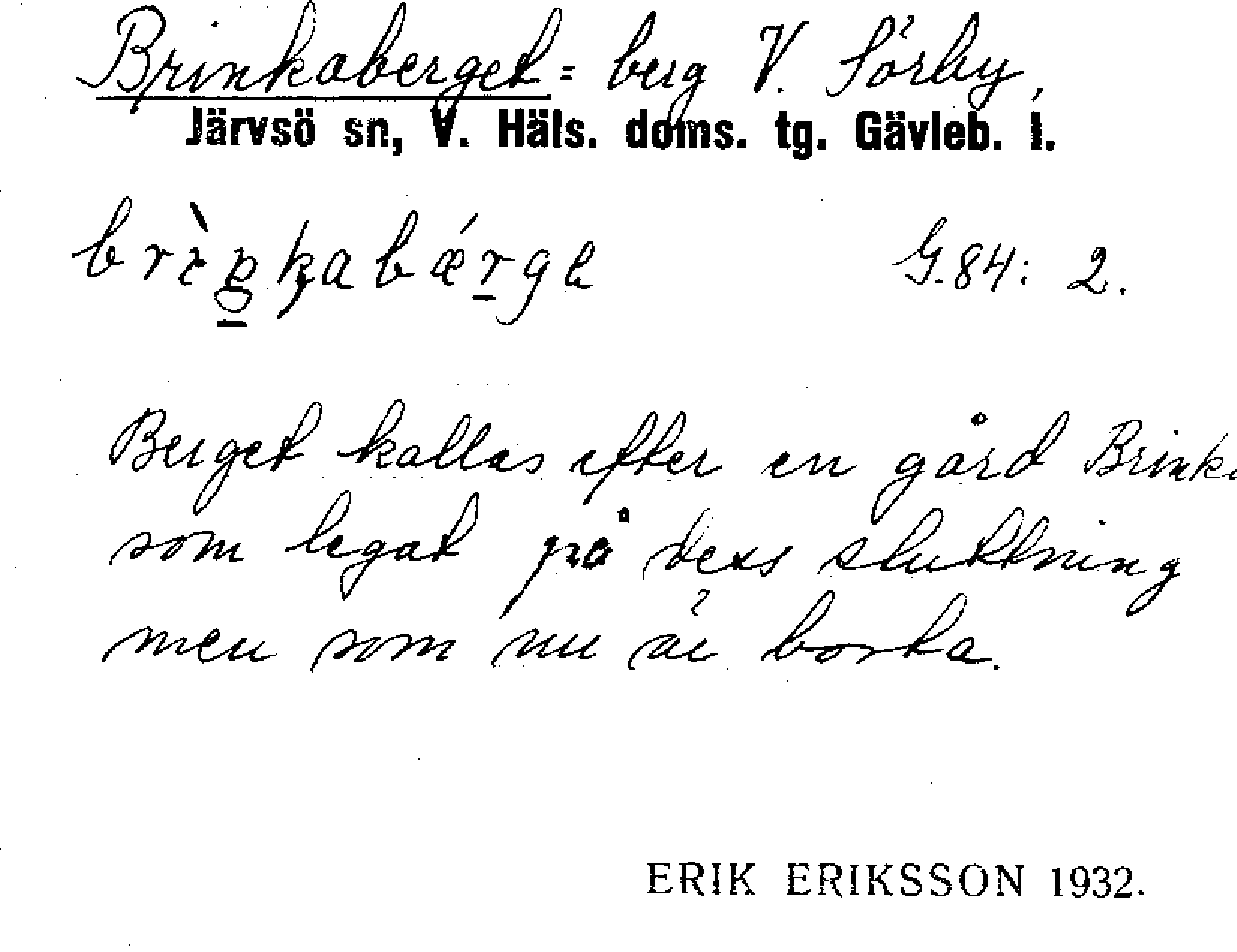 Brinkaberget = berg V. Sörby,
Järvsö sn, V. Häls. doms. tg. Gävleb. l.
G. 84: 2.
Berget kallas efter en gård Brink
som legat på dess sluttning
men som nu är borta.
ERIK ERIKSSON 1932.